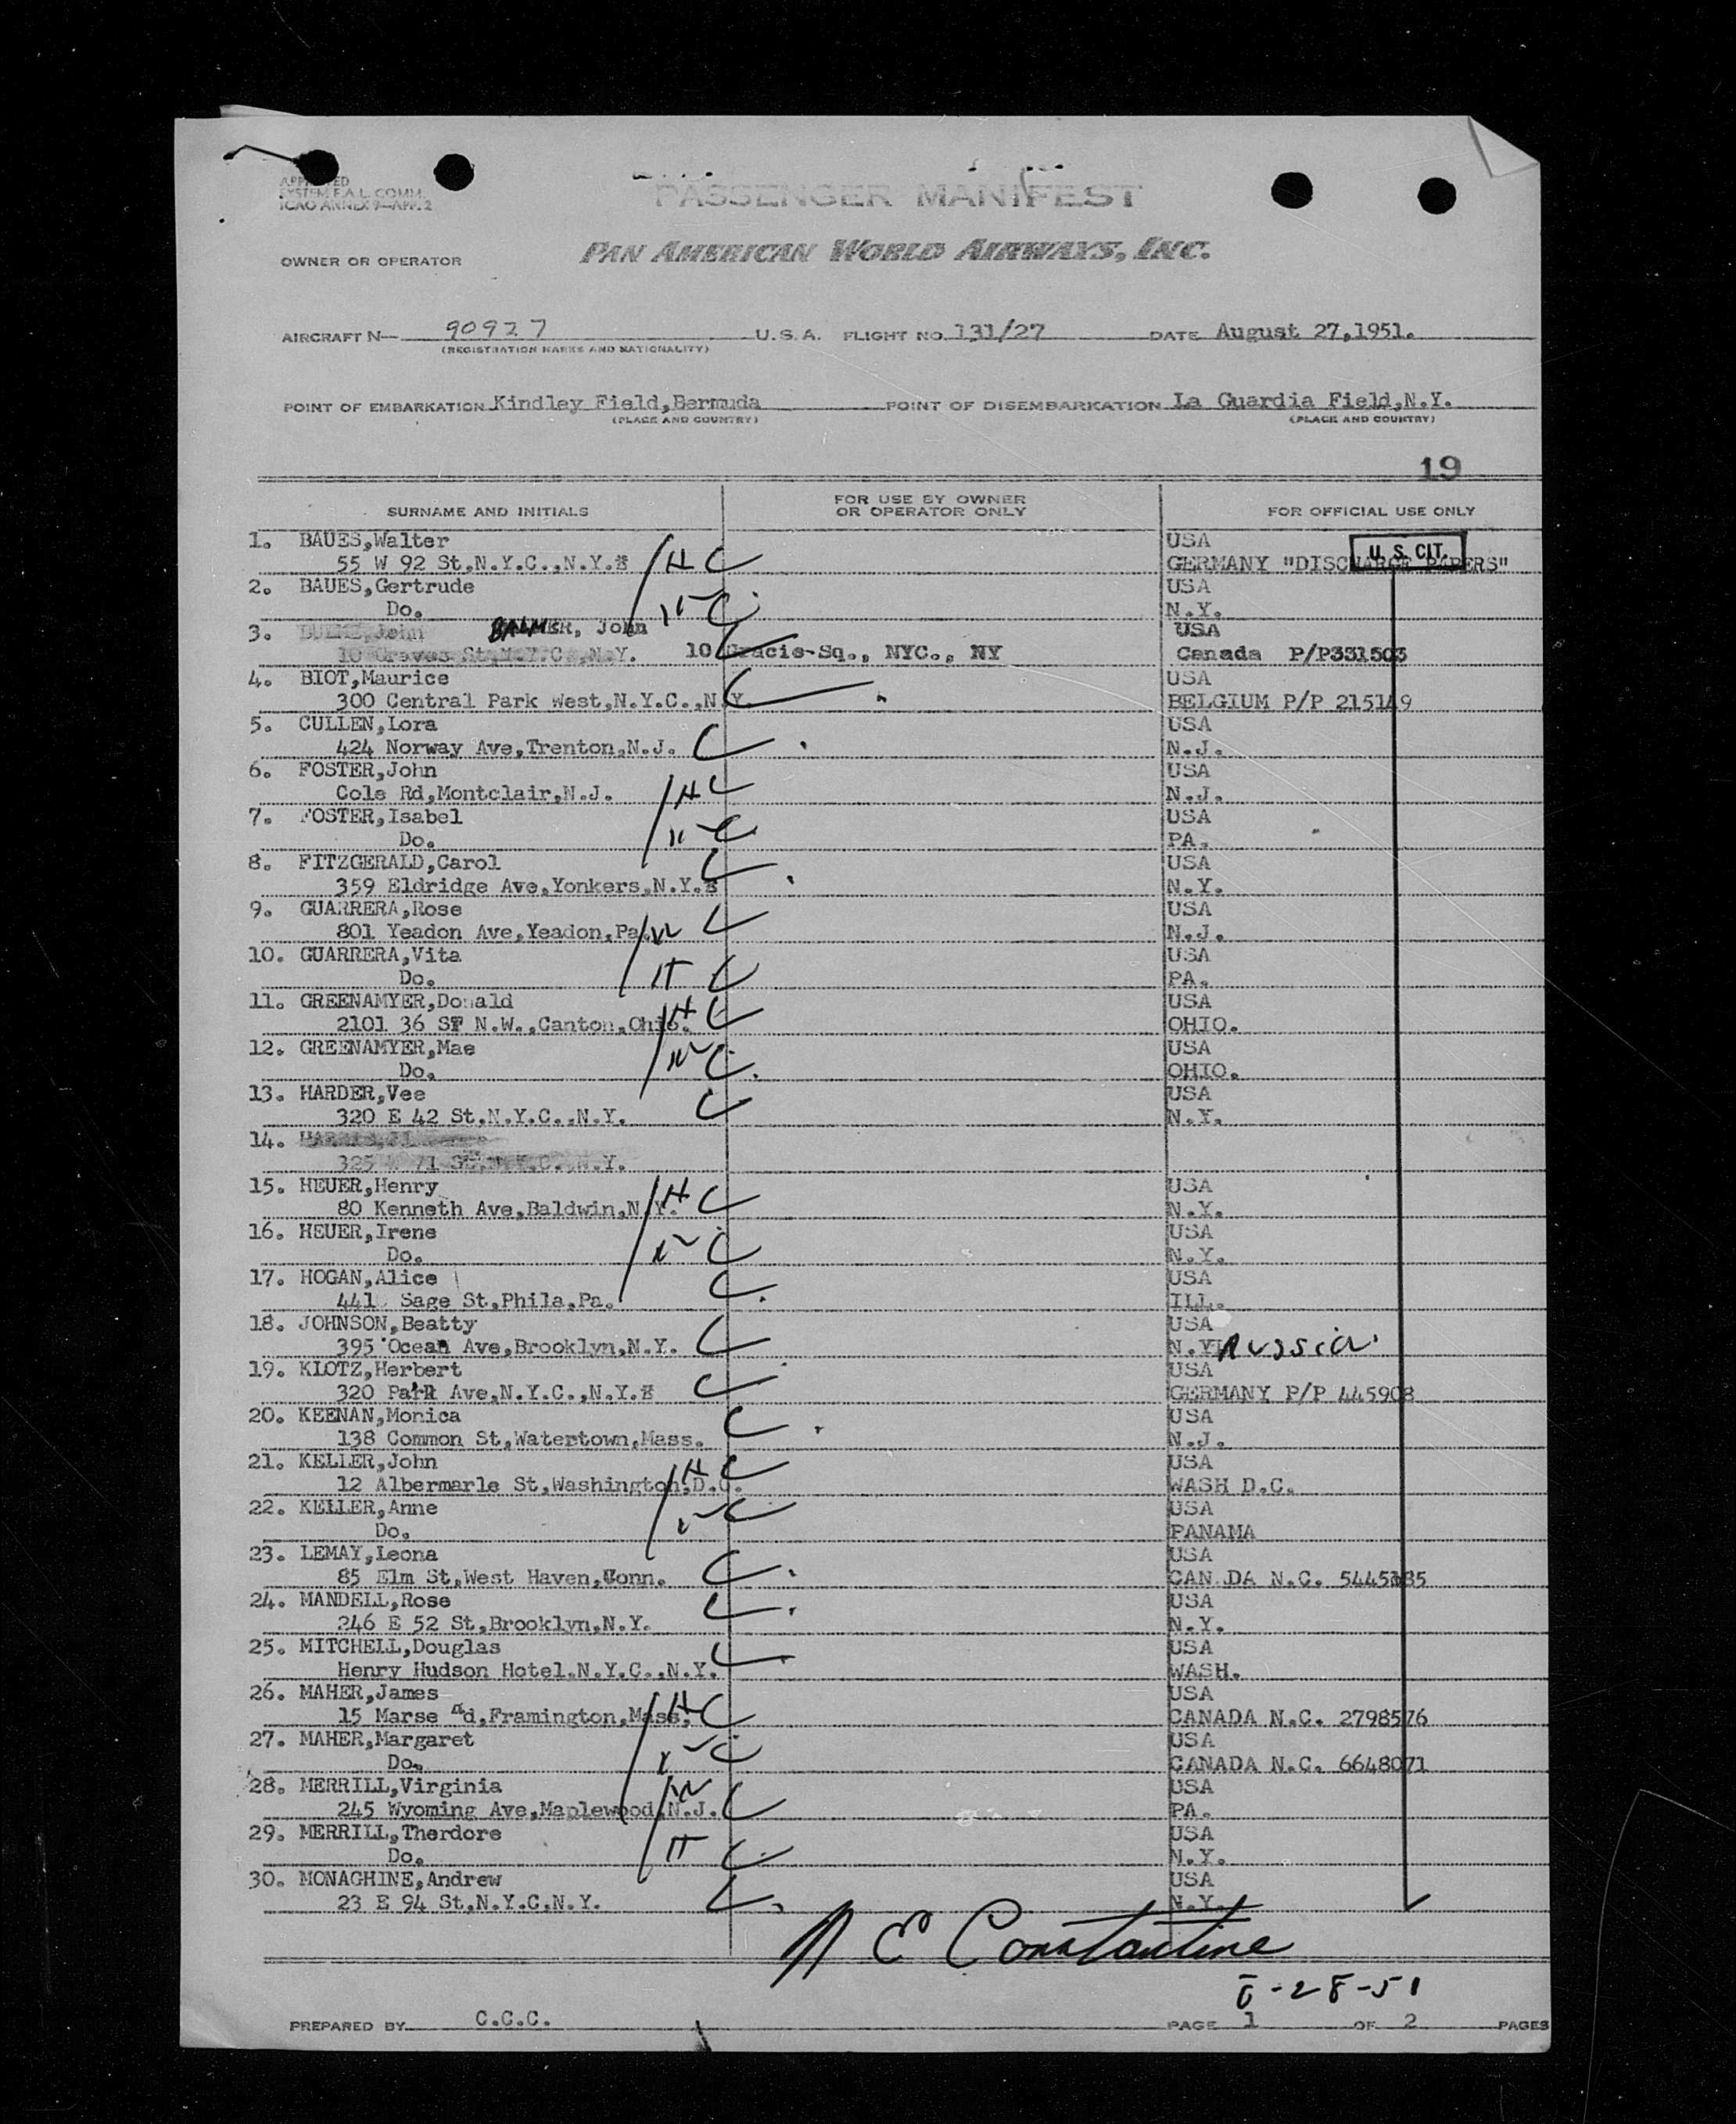 APPROVED
SYSTEM F.A.L. COMM.
ICAO ANNEX 9—APP. 2
PASSENGER MANIFEST
OWNER OR OPERATOR PAN AMERICAN WORLD AIRWAYS, INC.
AIRCRAFT N— 90927 U.S.A. FLIGHT NO. 131/27 DATE August 27,1951.
(REGISTRATION MARKS AND NATIONALITY)
POINT OF EMBARKATION Kindley Field,Bermuda POINT OF DISEMBARKATION La Guardia Field,N.Y.
(PLACE AND COUNTRY) (PLACE AND COUNTRY)
19
SURNAME AND INITIALS FOR USE BY OWNER OR OPERATOR ONLY FOR OFFICIAL USE ONLY
1. BAUES,Walter USA U.S. CIT.
55 W 92 St.N.Y.C.,N.Y. H C GERMANY "DISCHARGE PAPERS"
2. BAUES,Gertrude USA
Do. C N.Y.
3. John BALMER, John USA
10 Graves St,N.Y.C.,N.Y. 10 Gracie-Sq., NYC., NY Canada P/P331503
4. BIOT,Maurice USA
300 Central Park West,N.Y.C.,N.Y. BELGIUM P/P 215149
5. CULLEN,Lora USA
424 Norway Ave,Trenton,N.J. C N.J.
6. FOSTER,John USA
Cole Rd,Montclair,N.J. H C N.J.
7. FOSTER,Isabel USA
Do. C PA.
8. FITZGERALD,Carol USA
359 Eldridge Ave,Yonkers,N.Y. C N.Y.
9. GUARRERA,Rose USA
801 Yeadon Ave,Yeadon,Pa. C N.J.
10. GUARRERA,Vita USA
Do. C PA.
11. GREENAMYER,Donald USA
2101 36 ST N.W.,Canton,Ohio. H C OHIO.
12. GREENAMYER,Mae USA
Do. C OHIO.
13. HARDER,Vee USA
320 E 42 St.N.Y.C.,N.Y. C N.Y.
14.
325 71 N.Y.
15. HEUER,Henry USA
80 Kenneth Ave,Baldwin,N.Y. H C N.Y.
16. HEUER,Irene USA
Do. C N.Y.
17. HOGAN,Alice USA
441 Sage St,Phila,Pa. C ILL.
18. JOHNSON,Beatty USA
395 Ocean Ave,Brooklyn,N.Y. C N.Y. Russia
19. KLOTZ,Herbert USA
320 Park Ave,N.Y.C.,N.Y. C GERMANY P/P 445908
20. KEENAN,Monica USA
138 Common St,Watertown,Mass. C N.J.
21. KELLER,John USA
12 Albermarle St,Washington,D.C. H C WASH D.C.
22. KELLER,Anne USA
Do. C PANAMA
23. LEMAY,Leona USA
85 Elm St,West Haven,Conn. C CANADA N.C.
24. MANDELL,Rose USA
246 E 52 St,Brooklyn,N.Y. C N.Y.
25. MITCHELL,Douglas USA
Henry Hudson Hotel.N.Y.C.,N.Y. C WASH.
26. MAHER,James USA
15 Marse Rd,Framington,Mass. H C CANADA N.C. 2798576
27. MAHER,Margaret USA
Do. C CANADA N.C. 6648071
28. MERRILL,Virginia USA
245 Wyoming Ave,Maplewood,N.J. C PA.
29. MERRILL,Therdore USA
Do. C N.Y.
30. MONAGHINE,Andrew USA
23 E 94 St.N.Y.C.N.Y. C N.Y.
E Constantine
8-28-51
PREPARED BY C.C.C. PAGE 1 OF 2 PAGES